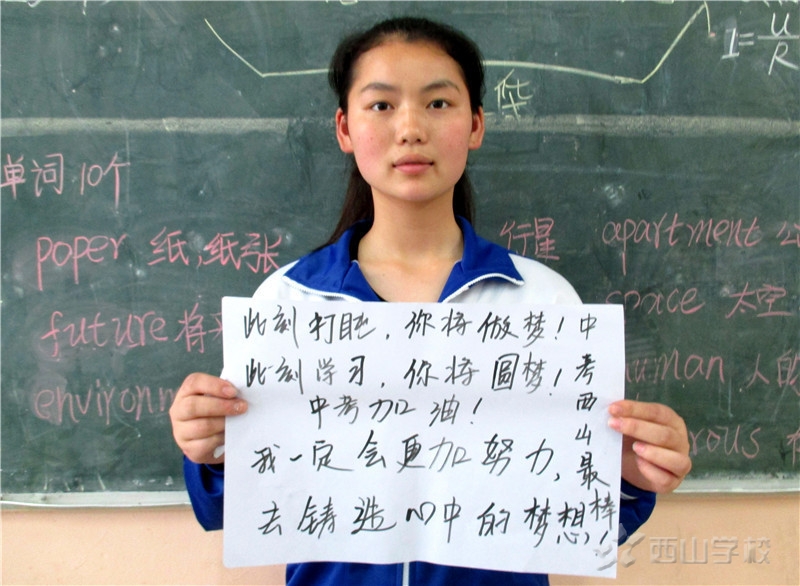 U
I=
R
华
单词10个
poper 纸,纸张
行星
apartment 公
future 将
space 太空
environm
human 人的
rous
此刻打盹,你将做梦!
此刻学习,你将圆梦!
中考加油!
我一定会更加努力,
去铸造心中的梦想!
中考西山最棒!
西山学校